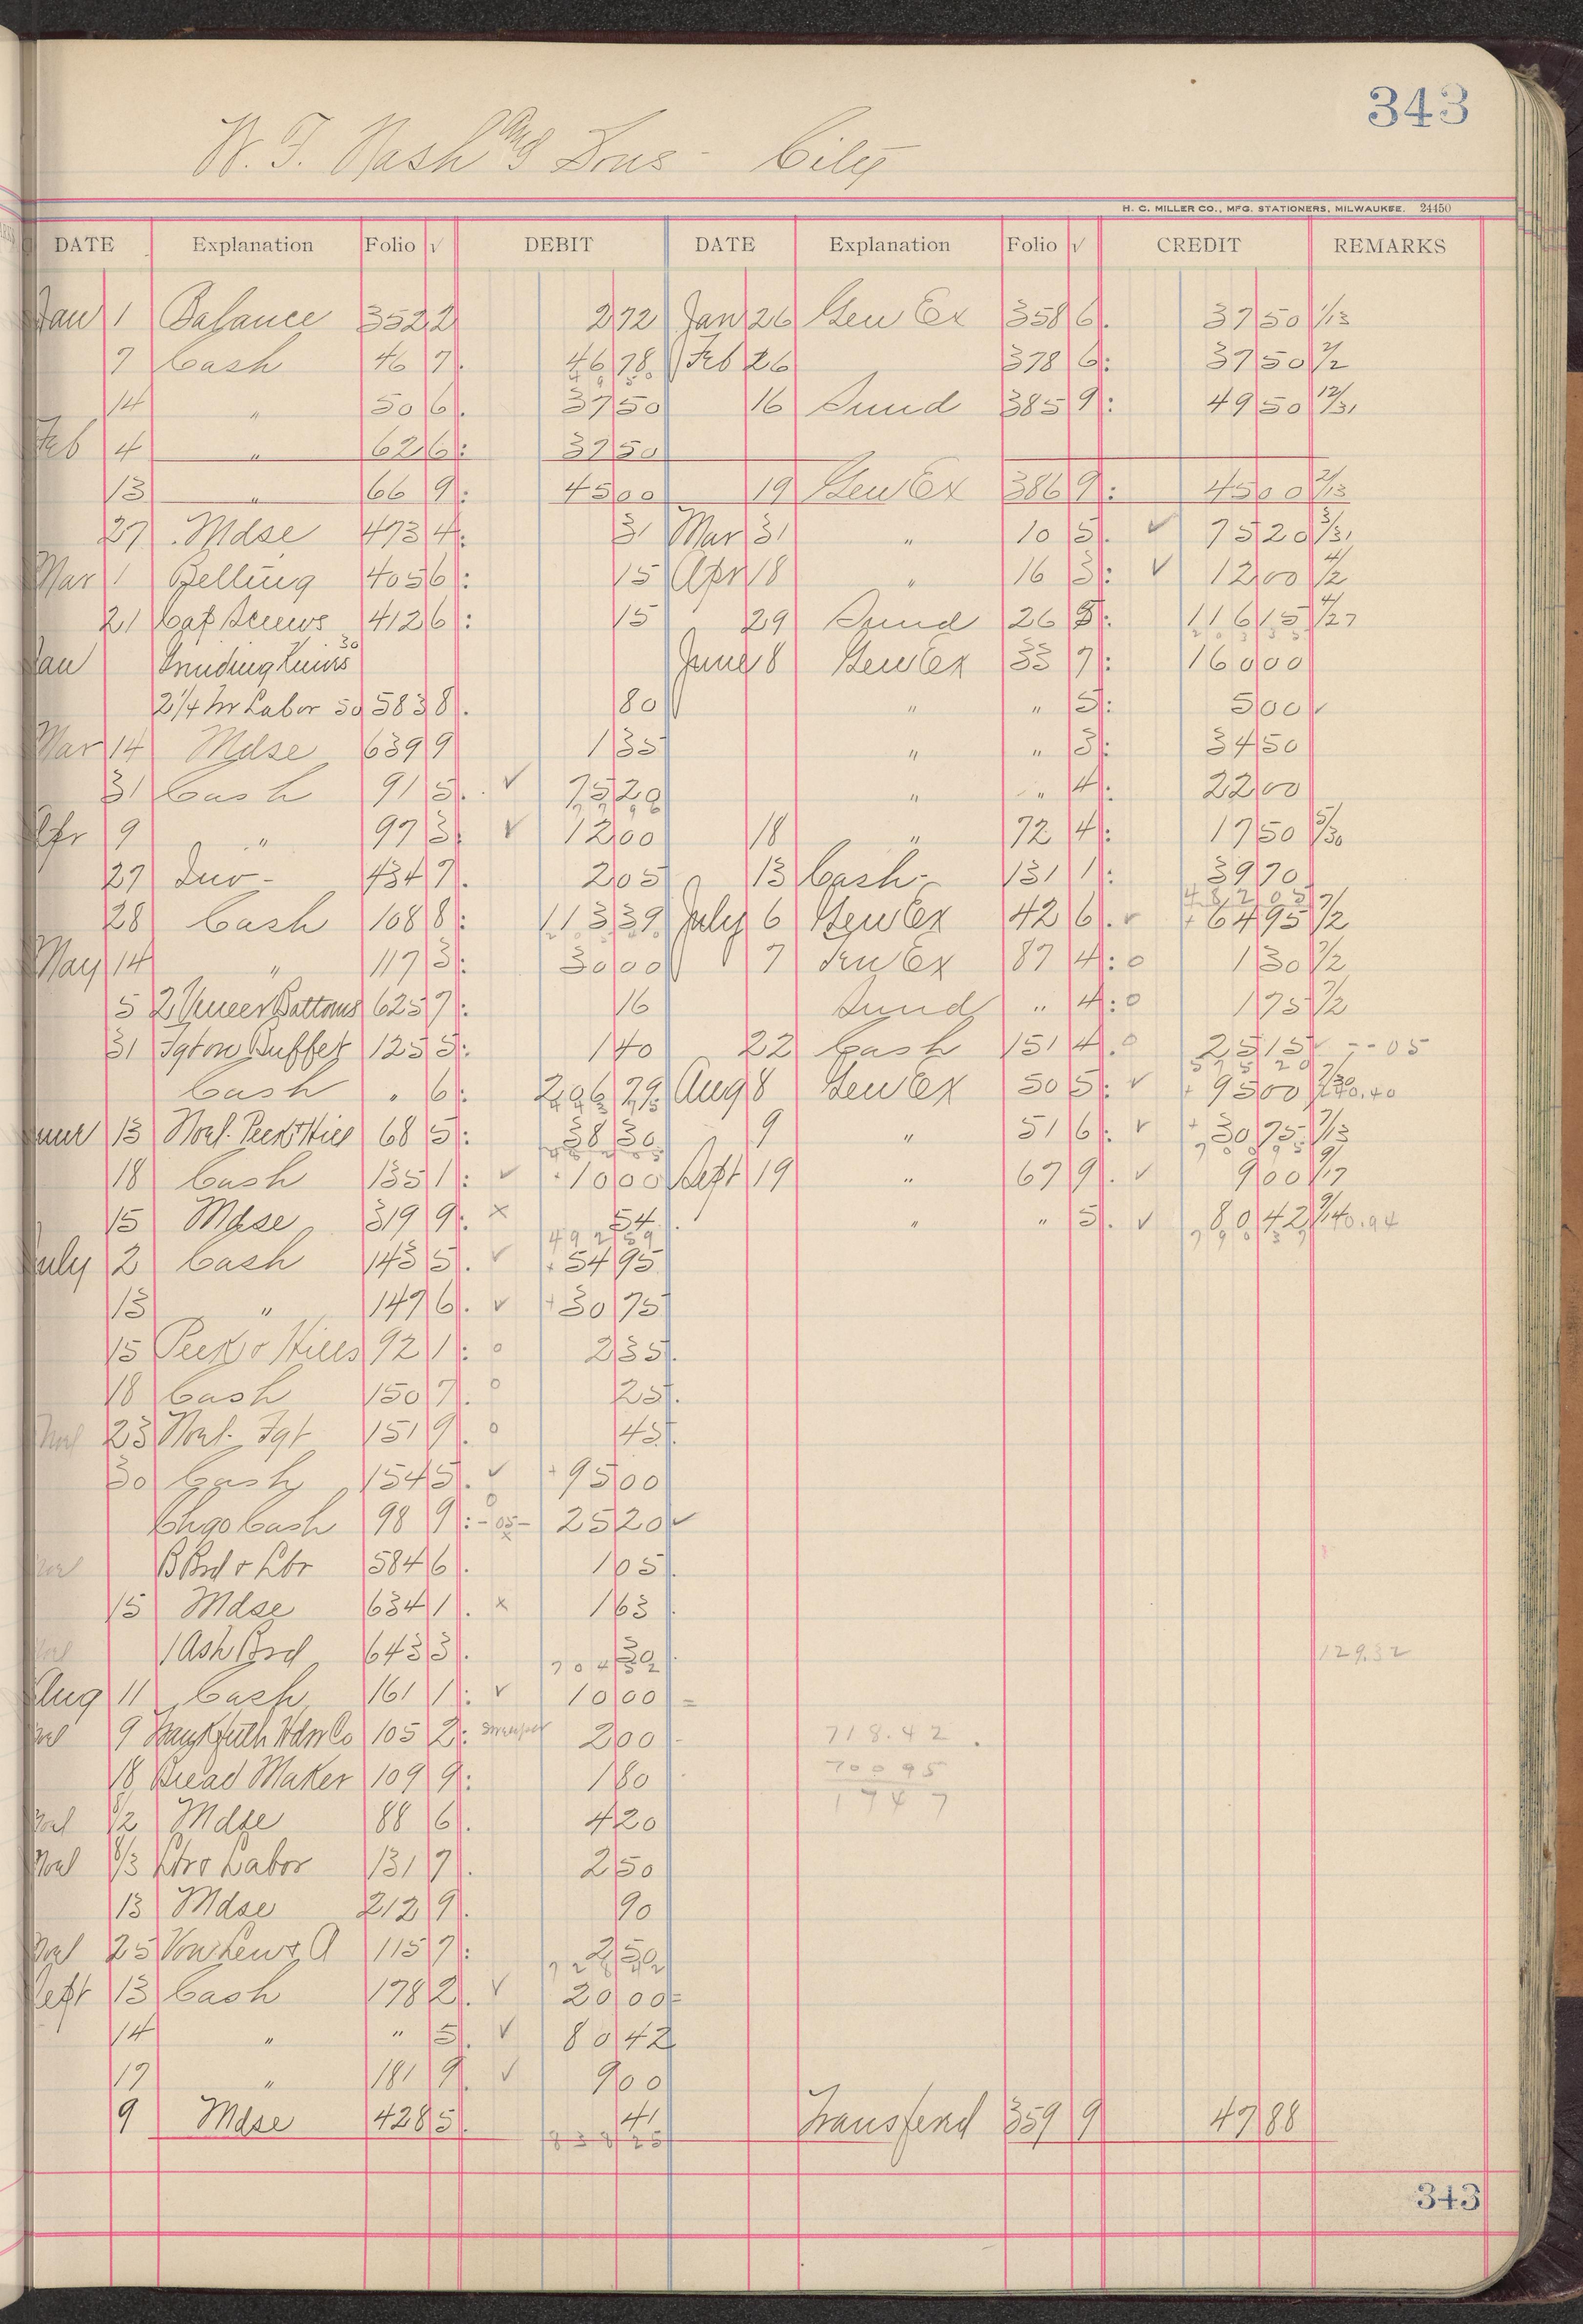 343
W. F. Nash and Sons - City
H. C. MILLER CO., MFG. STATIONERS, MILWAUKEE. 24450
DATE Explanation Folio √ DEBIT DATE Explanation Folio √ CREDIT REMARKS
Jan 1 Balance 352 2 2 72 Jan 26 Gen Ex 358 6. 37 50 1/13
7 Cash 46 7. 46 78. Feb 26 378 6: 37 50 2/2
14 " 50 6. 37 50 16 Sund 385 9: 49 50 12/31
Feb 4 " 62 6: 37 50
13 " 66 9: 45 00 19 Gen Ex 386 9: 45 00 2/13
27 Mdse 473 4. 31 Mar 31 " 10 5. √ 75 20 3/31
Mar 1 Belting 405 6: 15 Apr 18 " 16 3: √ 12 00 4/2
21 Cap Screws 412 6: 15 29 Sund 26 8: 116 15 4/27
Jan 30 June 8 Gen Ex 33 7: 160 00
2 1/4 hr Labor 50 583 8. 80 " " 5: 5 00
Mar 14 Mdse 639 9 1 35 " " 3: 34 50
31 Cash 91 5. √ 75 20 " " 4: 22 00
Apr 9 " 97 3. √ 12 00 18 " 72 4: 17 50 5/30
27 Inv - 434 7. 2 05 13 Cash - 131 1: 39 70
482 05
28 Cash 108 8: 113 39. July 6 Gen Ex 42 6. √ 64 95 7/2
May 14 " 117 3: 30 00 7 Gen Ex 87 4: o 1 30 7/2
5 2 Veneer Bottoms 625 7: 16 Sund " 4: o 1 75 7/2
31 Fgt on Buffet 125 5: 1 40 22 Cash 151 4. o 25 15 -- 05
575 20
Cash " 6: 206 29 Aug 8 Gen Ex 50 5: √ 95 00 7/30 40.40
June 13 Noel. Peck & Hills 68 5: 38 30 9 " 51 6: √ 30 75 7/13
18 Cash 135 1: √ 10 00 Sept 19 " 67 9. √ 9 00 9/17
15 Mdse 319 9: x 54 " " 5. √ 80 42 40.94
492 59
July 2 Cash 143 5. √ 54 95
13 " 147 6. √ 30 75
15 Peck & Hills 92 1: o 2 35.
18 Cash 150 7. o 25.
23 Noel. Fgt 151 9. o 45.
30 Cash 154 5. √ 95 00
Chgo Cash 98 9: - 05 - 25 20 √
B Brd & Lbr 584 6. 1 05.
15 Mdse 634 1. x 1 63.
1 Ash Brd 643 3. 30 129.32
704 52
Aug 11 Cash 161 1: √ 10 00
9 Frankfurth Hdw Co 105 2: 2 00 718.42
18 Bread Maker 109 9: 1 80 700 95
12 Mdse 88 6. 4 20 17 47
Noel 8/3 Lbr & Labor 131 7. 2 50
13 Mdse 212 9. 90
25 115 7: 2 50
Sept 13 Cash 178 2. √ 20 00
14 " " 5. √ 80 42
17 " 181 9. √ 9 00
9 Mdse 428 5. 41 Transferd 359 9 47 88
838 25
343